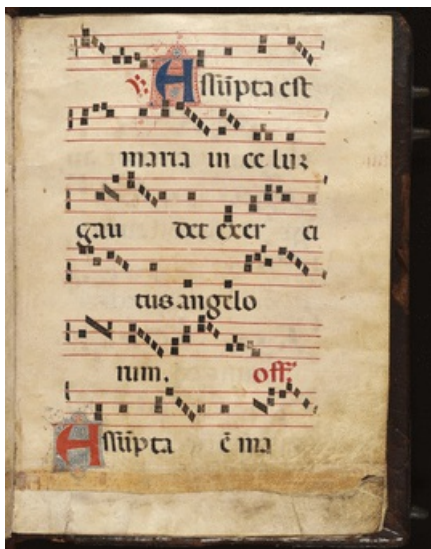 ℣. Assūpta est
maria in celuz
gau det exer ci
tus angelo
rum. off.
Assūpta ē ma